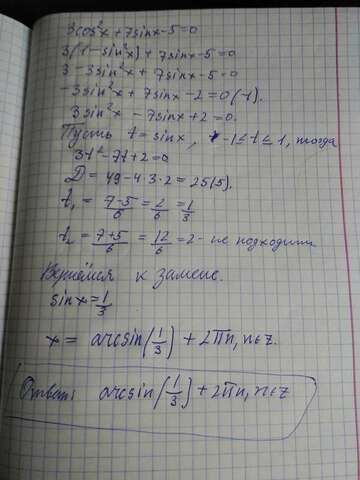 3cos²x + 7sinx - 5 = 0
3(1 - sin²x) + 7sinx - 5 = 0
3 - 3sin²x + 7sinx - 5 = 0
-3sin²x + 7sinx - 2 = 0 (-1).
3sin²x - 7sinx + 2 = 0.
Пусть t = sinx, -1 ≤ t ≤ 1, тогда
3t² - 7t + 2 = 0
D = 49 - 4·3·2 = 25(5).
t₁ = (7-5)/6 = 2/6 = 1/3
t₂ = (7+5)/6 = 12/6 = 2 - не подходит
Вернёмся к замене.
sinx = 1/3
x = arcsin(1/3) + 2πn, n∈z.
Ответ: arcsin(1/3) + 2πn, n∈z